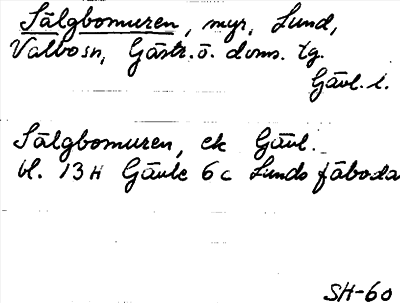 Sälgbomuren, myr, Lund,
Valbo sn, Gästr. ö. doms. tg.
Gävl. l.
Sälgbomuren, ek Gävl.
bl. 13H Gävle 6c Lunds fäbodar
SH-60